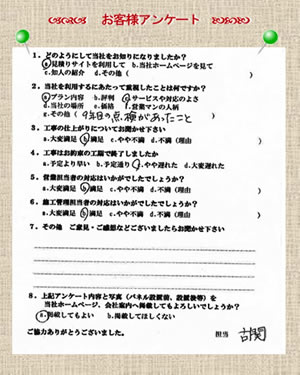 お客様アンケート
1．どのようにして当社をお知りになりましたか？
a.見積りサイトを利用して b.当社ホームページを見て
c.知人の紹介 d.その他（ ）
2．当社を利用するにあたって重視したことは何ですか？
a.プラン内容 b.評判 c.サービスや対応のよさ
d.当社の場所 e.価格 f.営業マンの人柄
e.その他（ 9年目の点検があったこと ）
3．工事の仕上がりについてお聞かせ下さい
a.大変満足 b.満足 c.やや不満 d.不満（理由 ）
4．工事はお約束の工期で終了しましたか
a.予定より早い b.予定通り c.やや遅れた d.大変遅れた
5．営業担当者の対応はいかがでしたでしょうか？
a.大変満足 b.満足 c.やや不満 d.不満（理由 ）
6．施工管理担当者の対応はいかがでしたでしょうか？
a.大変満足 b.満足 c.やや不満 d.不満（理由 ）
7．その他 ご意見・ご感想などございましたらお聞かせ下さい
8．上記アンケート内容と写真（パネル設置前、設置後等）を
当社ホームページ、会社案内へ掲載してもよろしいでしょうか？
a.掲載してもよい b.掲載してほしくない
ご協力ありがとうございました。 担当 古関